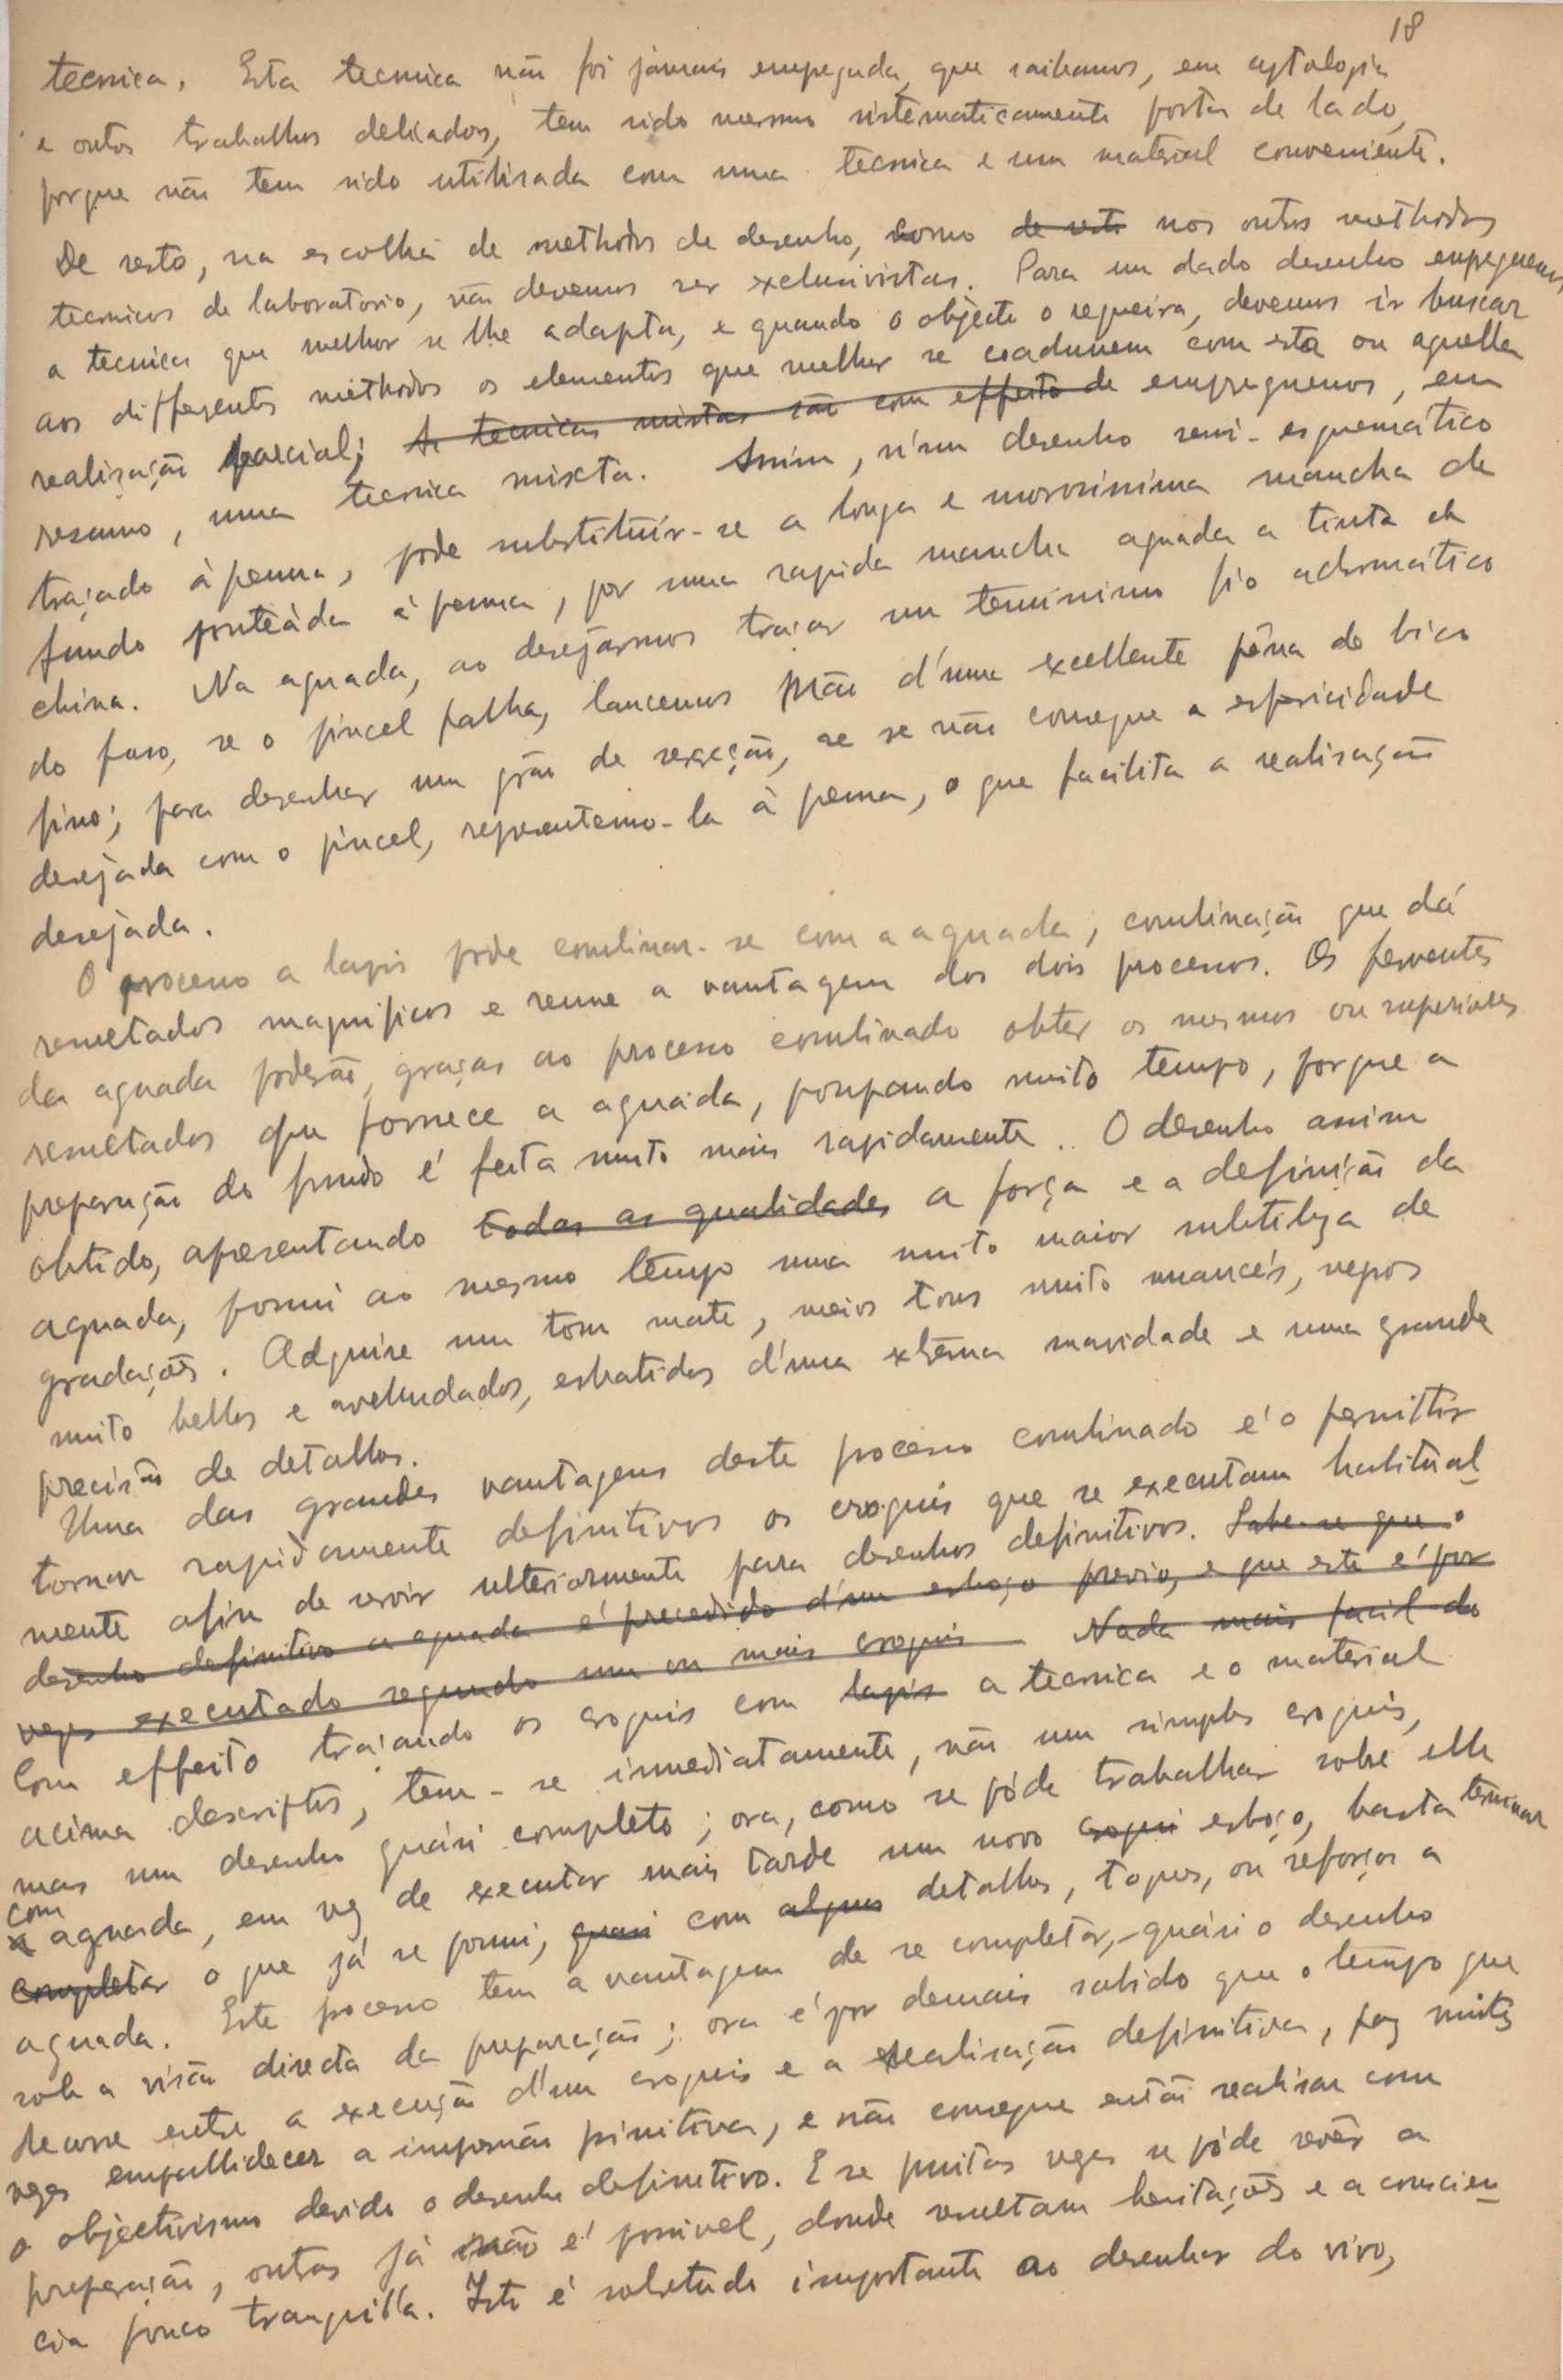 18
tecnica. Esta tecnica não foi jámais empregada, que saibamos, em cytologia
e outos trabalhos delicados, tem sido mesmo sistematicamente posta de lado,
porque não tem sido utilisada com uma tecnica e um material conveniente.
De resto, na escolha de methodos de desenho, como de resto nos outos methodos
tecnicos de laboratorio, não devemos ser exclusivistas. Para um dado desenho empeguemos
a tecnica que melhor se lhe adapta, e quando o objecto o requeira, devemos ir buscar
aos differentes methodos os elementos que melhor se coadunem com esta ou aquella
realisação parcial; As tecnicas mistas são com effeito de empreguemos, em
resumo, uma tecnica mixta. Assim, n'um desenho semi-esquemático
traçado à penna, póde substituir-se a longa e morosissima mancha de
fundo ponteáda á penna, por uma rapida mancha aguada a tinta da
china. Na aguada, ao desejármos traçar um tenuissimo fio acromático
do fuso, se o pincel falha, lancemos mão d'uma excellente pêna de bico
fino; para desenhar um grão de secreção, se se não consegue a esfericidade
desejada com o pincel, representemo-la à penna, o que facilita a realisação
desejada.
O processo a lapis póde combinar-se com a aguada, combinação que dá
resultados magnificos e reune a vantagem dos dois processos. Os ferventes
da aguada poderão, graças ao processo combinado obter os mesmos ou superiores
resultados que fornece a aguada, poupando muito tempo, porque a
preparação do fundo é feita muito mais rapidamente. O desenho assim
obtido, apresentando todas as qualidades a força e a definição da
aguada, possui ao mesmo tempo uma muito maior subtileza de
gradações. Adquire um tom mate, meios tons muito nuancés, negros
muito bellos e avelludados, esbatidos d'uma extrêma suavidade e uma grande
precisão de detalhes.
Uma das grandes vantagens deste processo combinado é o permittir
tornar rapidamente definitivos os croquis que se executam habitual-
mente afim de servir ulteriormente para desenhos definitivos. Sabe-se que o
desenho definitivo a aguada é precedido d'um esboço previo, e que este é por
vezes executado segundo um ou mais croquis Nada mais facil do
Com effeito traçando os croquis com lapis a tecnica e o material
acima descriptos, tem-se immediatamente, não um simples croquis,
mas um desenho quási completo; ora, como se póde trabalhar sobre elle
com aguada, em vez de executar mais tarde um novo croqui esboço, basta terminar
completar o que já se possui, quasi com alguns detalhes, toques, ou reforços a
aguada. Este processo tem a vantagem de se completar, quási o desenho
sob a visão directa da preparação; ora é por demais sabido que o tempo que
decorre entre a execução d'um croquis e a realisação definitiva, faz muitas
vezes empallidecer a impressão primitiva, e não consegue então realisar com
o objectivismo devido o desenho definitivo. E se muitas vezes se póde revêr a
preparação, outras já não é possivel, donde resultam hesitações e a conscien-
cia pouco tranquilla. Isto é sobretudo importante ao desenhar do vivo,